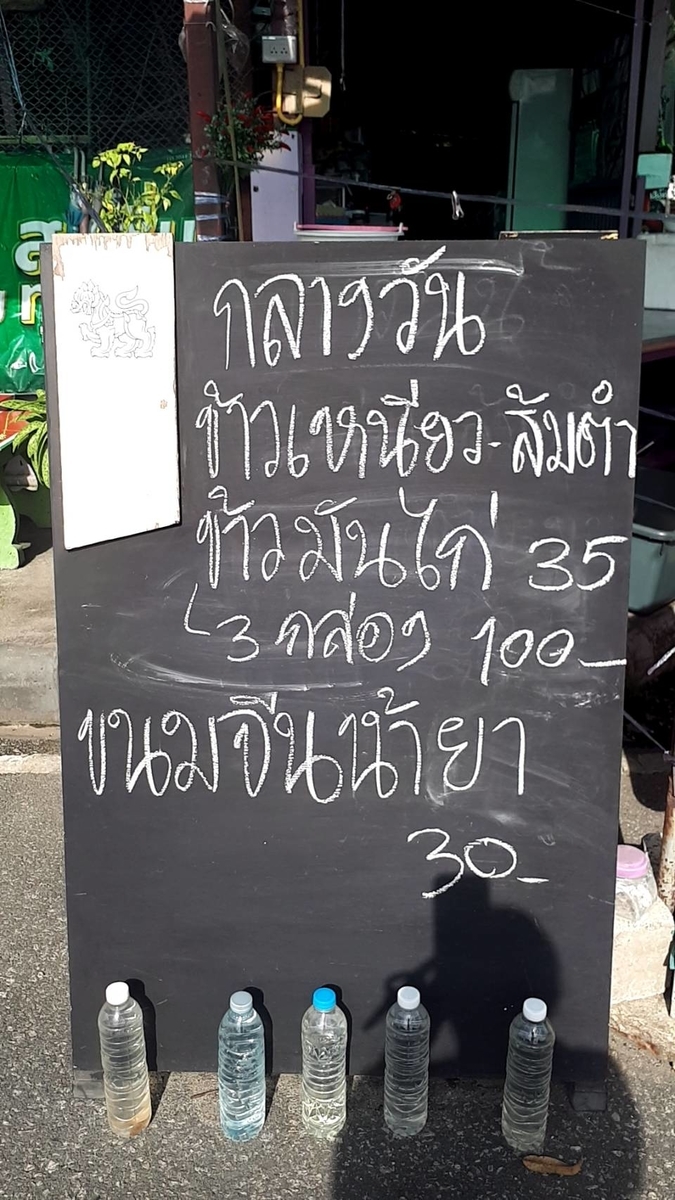 กลางวัน
ข้าวเหนียว-ส้มตำ
ข้าวมันไก่ 35
3 กล่อง 100-
ขนมจีนน้ำยา
30-